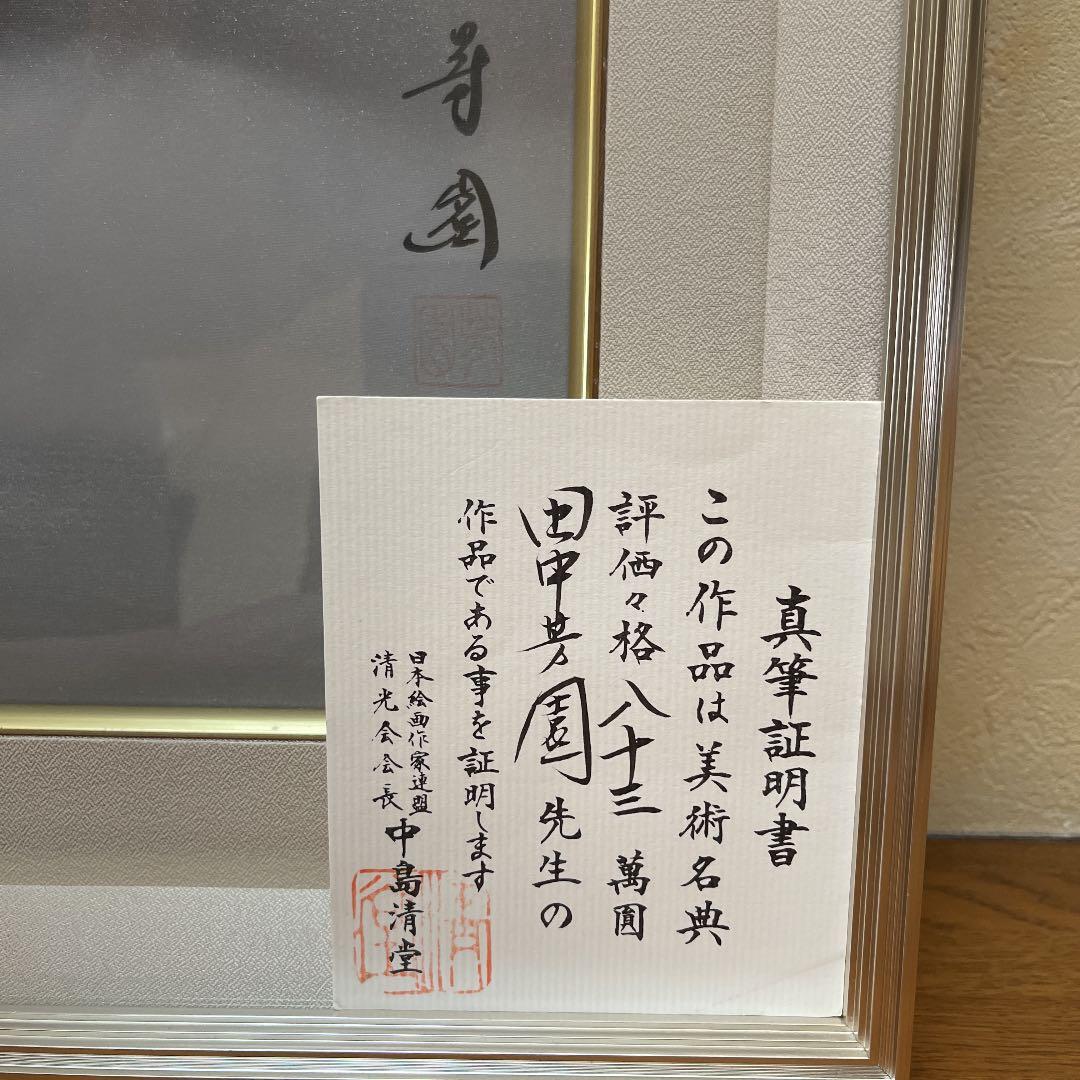 園
真筆証明書
この作品は美術名典
評価々格八十三萬圓
田中芳園先生の
作品である事を証明します
日本絵画作家連盟
清光会会長 中島清堂